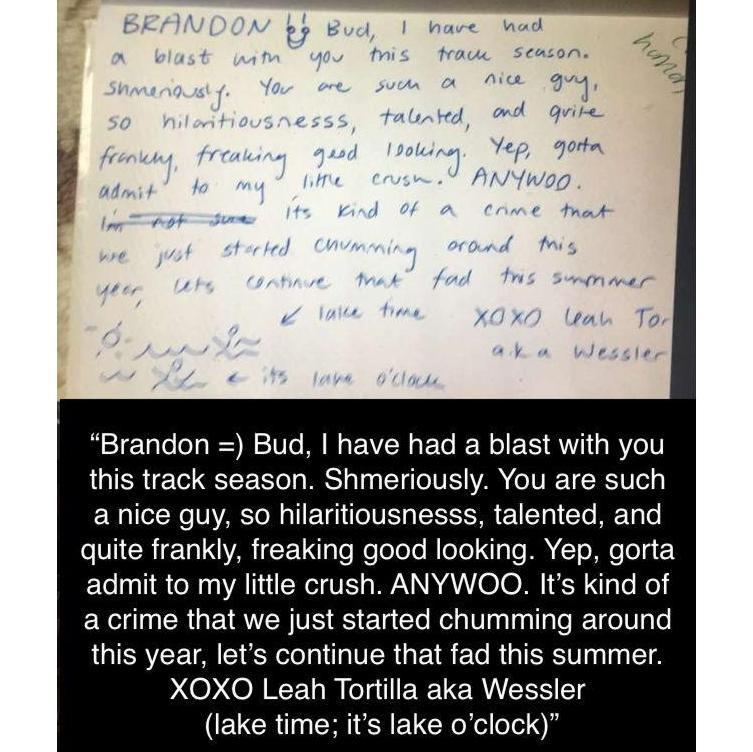 BRANDON Bud, I have had
a blast with you this track season.
Shmeriously. You are such a nice guy,
so hilaritiousnesss, talented, and quite
frankly, freaking good looking. Yep, gorta
admit to my little crush. ANYWOO.
I'm not sure its kind of a crime that
we just started chumming around this
year, lets continue that fad this summer
↙ lake time XOXO Leah Tor
a.k.a Wessler
← its lake o'clock
“Brandon =) Bud, I have had a blast with you
this track season. Shmeriously. You are such
a nice guy, so hilaritiousnesss, talented, and
quite frankly, freaking good looking. Yep, gorta
admit to my little crush. ANYWOO. It’s kind of
a crime that we just started chumming around
this year, let’s continue that fad this summer.
XOXO Leah Tortilla aka Wessler
(lake time; it’s lake o’clock)”